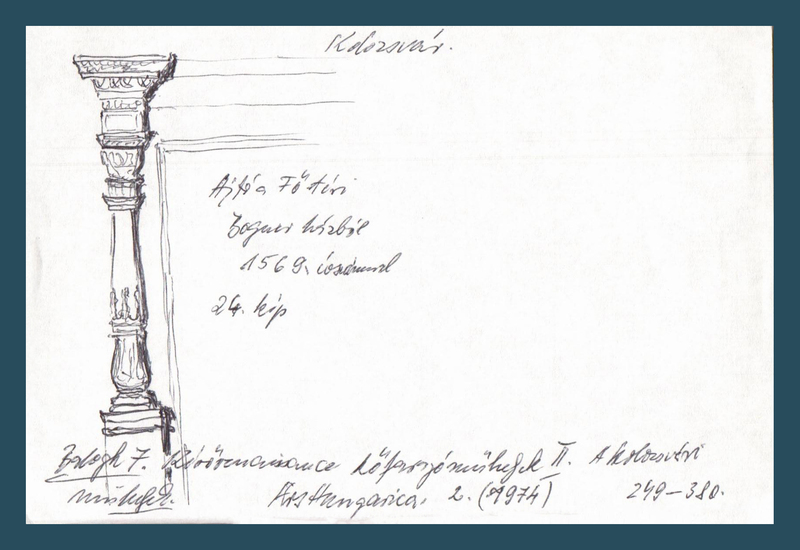 Kolozsvár.
Ajtó a Főtéri
Bogner házból
1569. évszámmal
24. kép
Balogh J. Későrenaissance kőfaragóműhelyek II. A kolozsvári
műhelyek. Ars Hungarica. 2. (1974) 249–380.